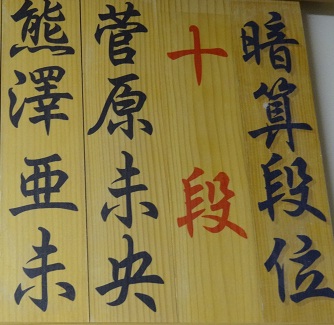 暗算段位
十段
菅原未央
熊澤亜未